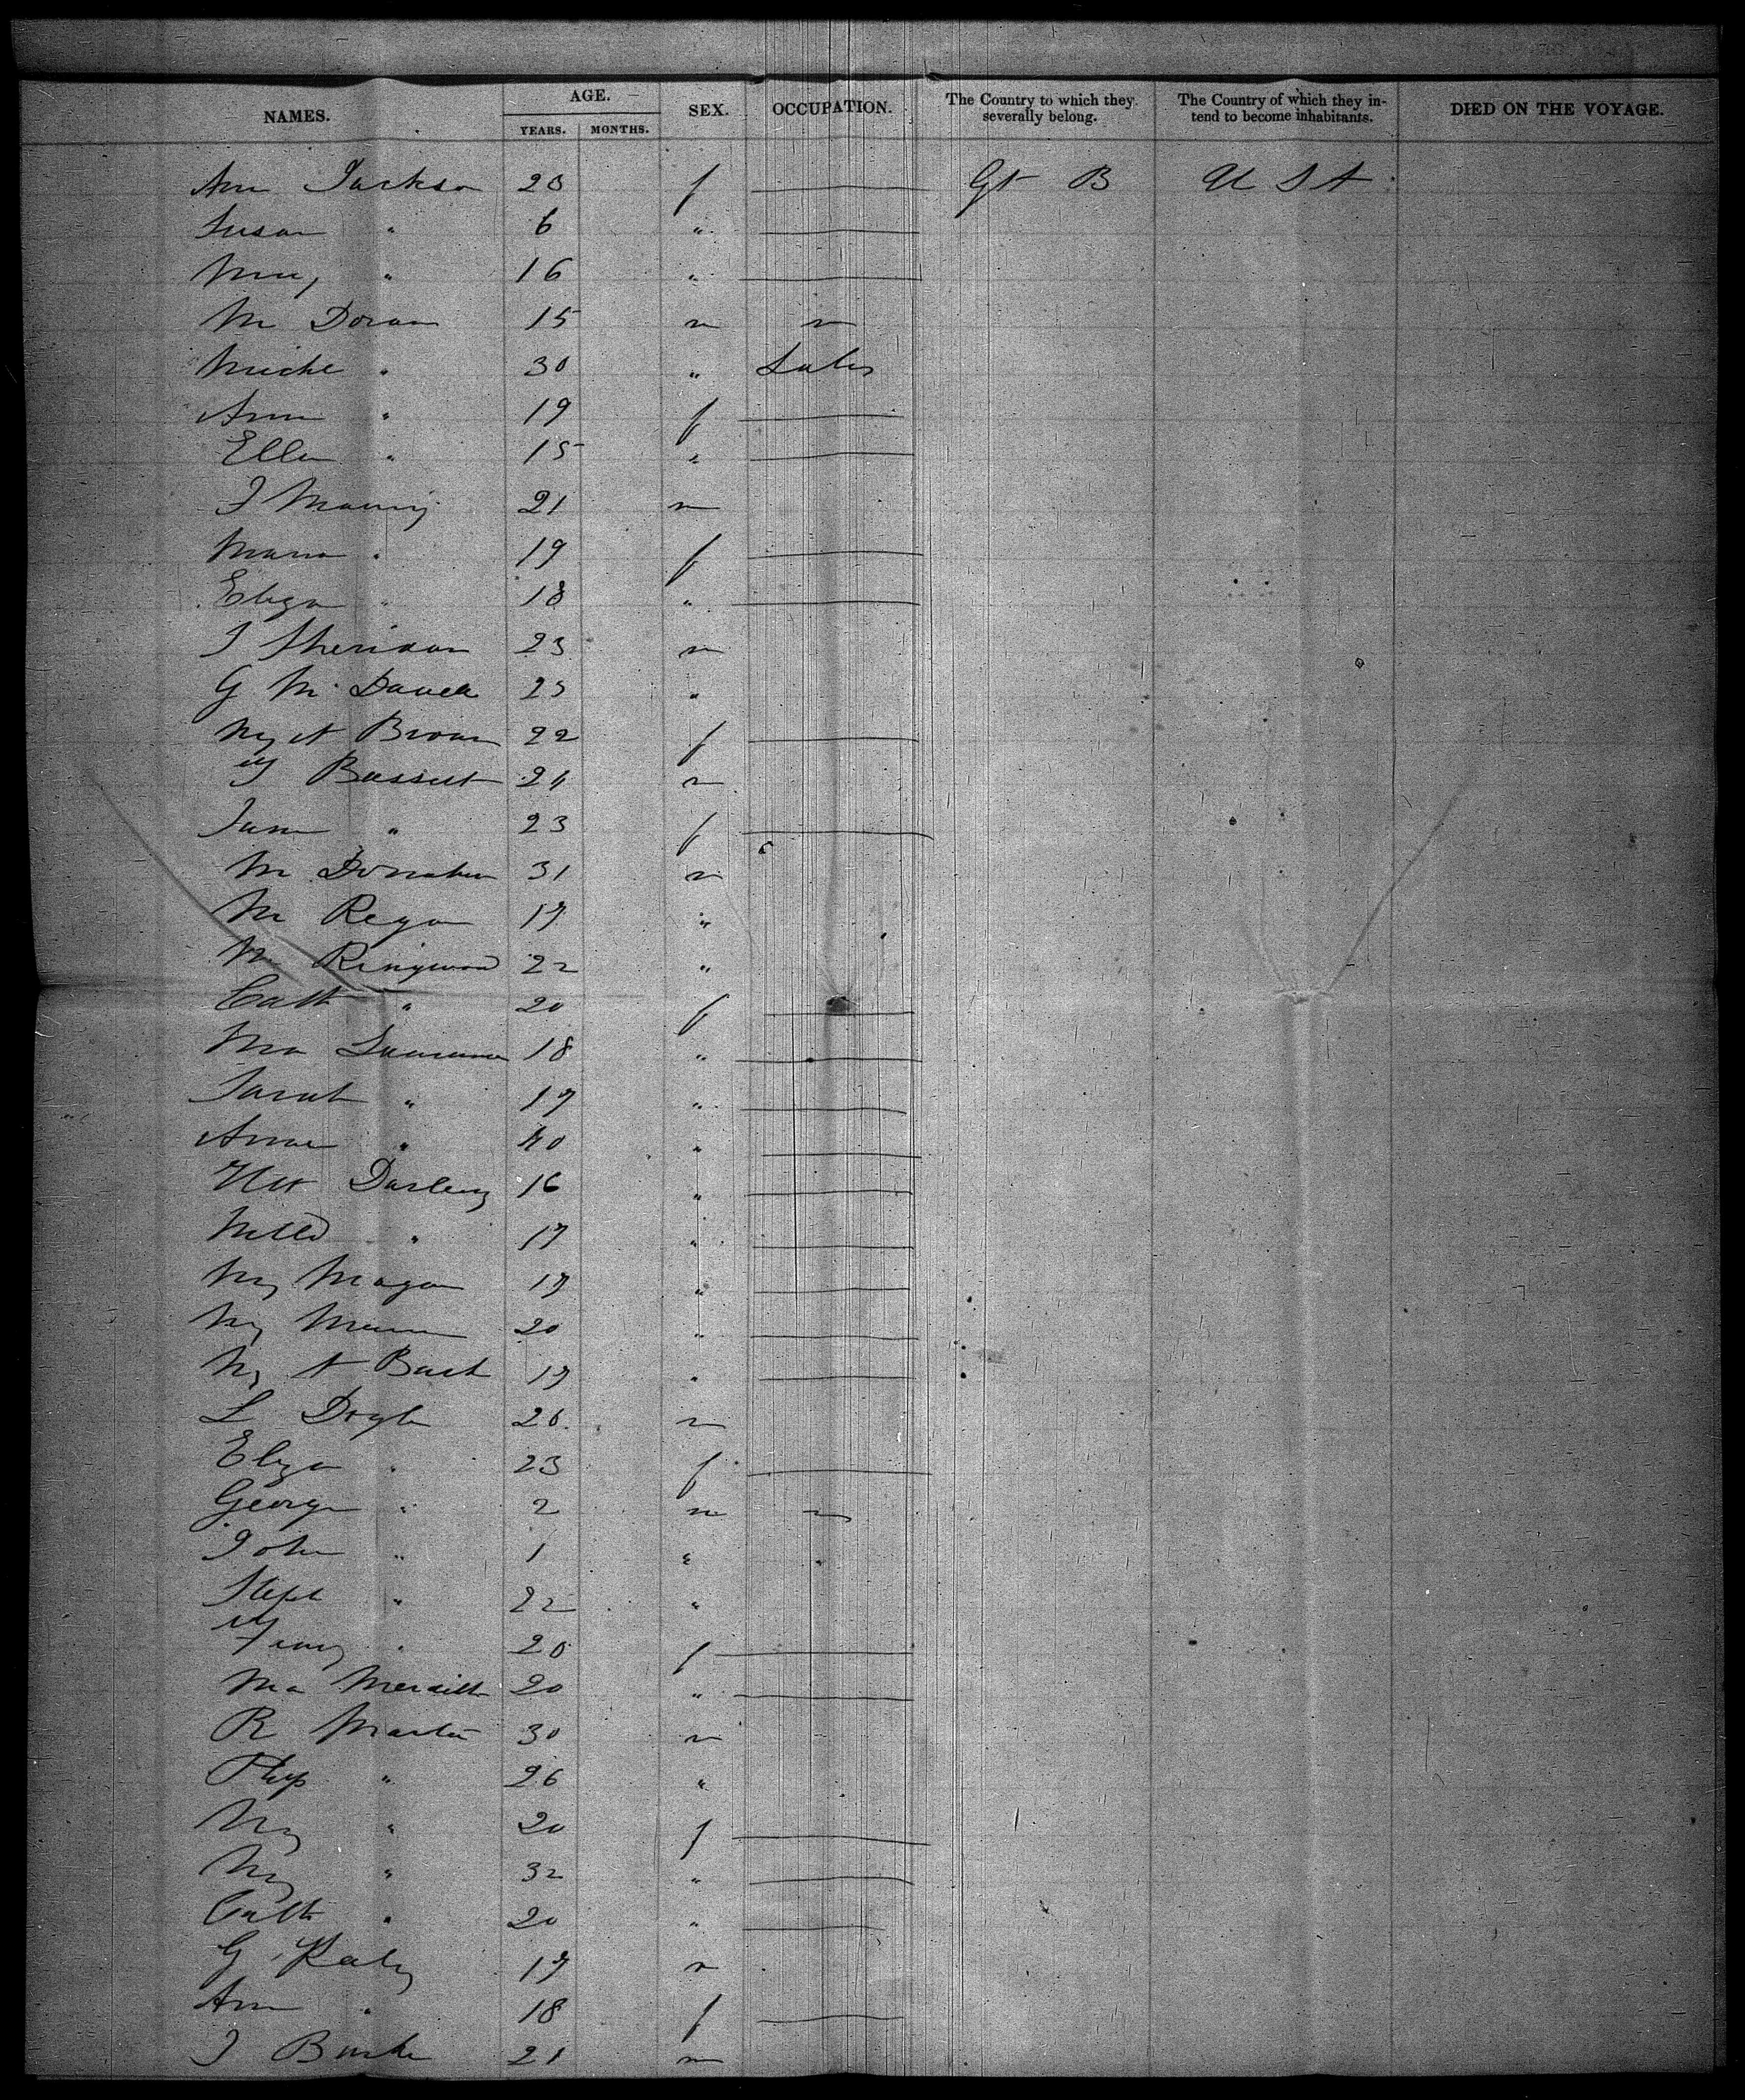 NAMES. AGE. YEARS. MONTHS. SEX. OCCUPATION. The Country to which they severally belong. The Country of which they intend to become inhabitants. DIED ON THE VOYAGE.
Ann Jackson 23 f Gt B U S A
Susan " 6 "
Mary " 16 "
M Doran 15 m
Miche " 30 " Labr
Ann " 19 f
Ellen " 15 "
J 21 m
Maria " 19 f
Eliza " 18 "
J Sheridan 23 m
G 25 "
Mgt Brown 22 f
Bassett 24 m
Jane " 23 f
M Donahu 31 m
M Regan 17 "
M Ringwood 22 "
Cath " 20 f
Ma 18 "
Sarah " 17 "
Anne " 40 "
Darling 16 "
" 17 "
My Magan 17 "
My 20 "
My A 17 "
L Doyle 26 m
Eliza " 23 f
George " 2 m
John " 1 "
Steph " 22 "
" 20 f
Ma Meredith 20 "
R Martin 30 m
" 26 "
My " 20 f
My " 32 "
Cath " 20 "
G 17 m
Ann " 18 f
J Burke 21 m